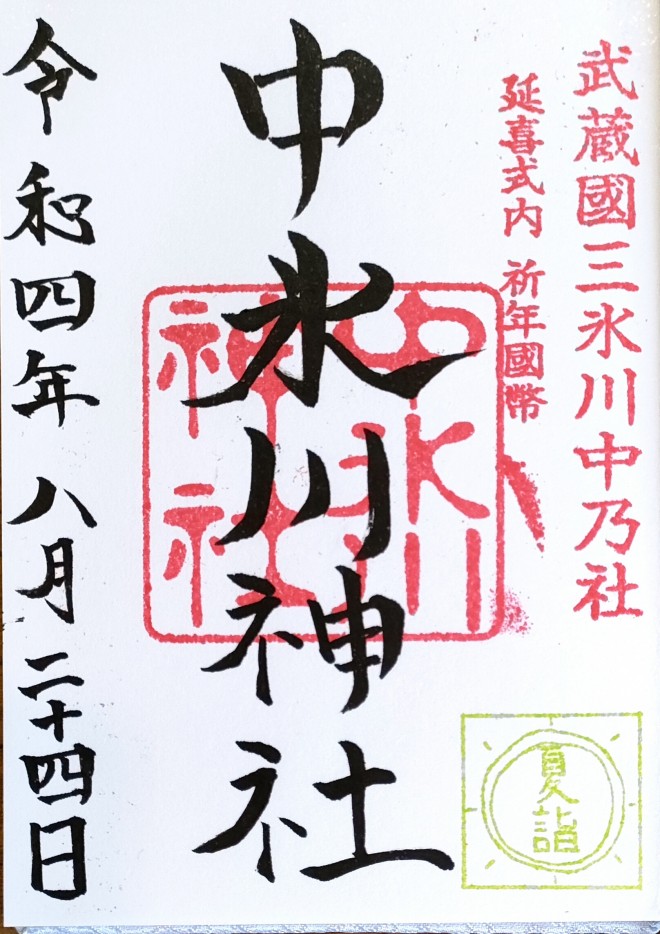 武蔵國三氷川中乃社
延喜式内 祈年國幣
中氷川神社
中氷川
神社
夏詣
令和四年 八月二十四日